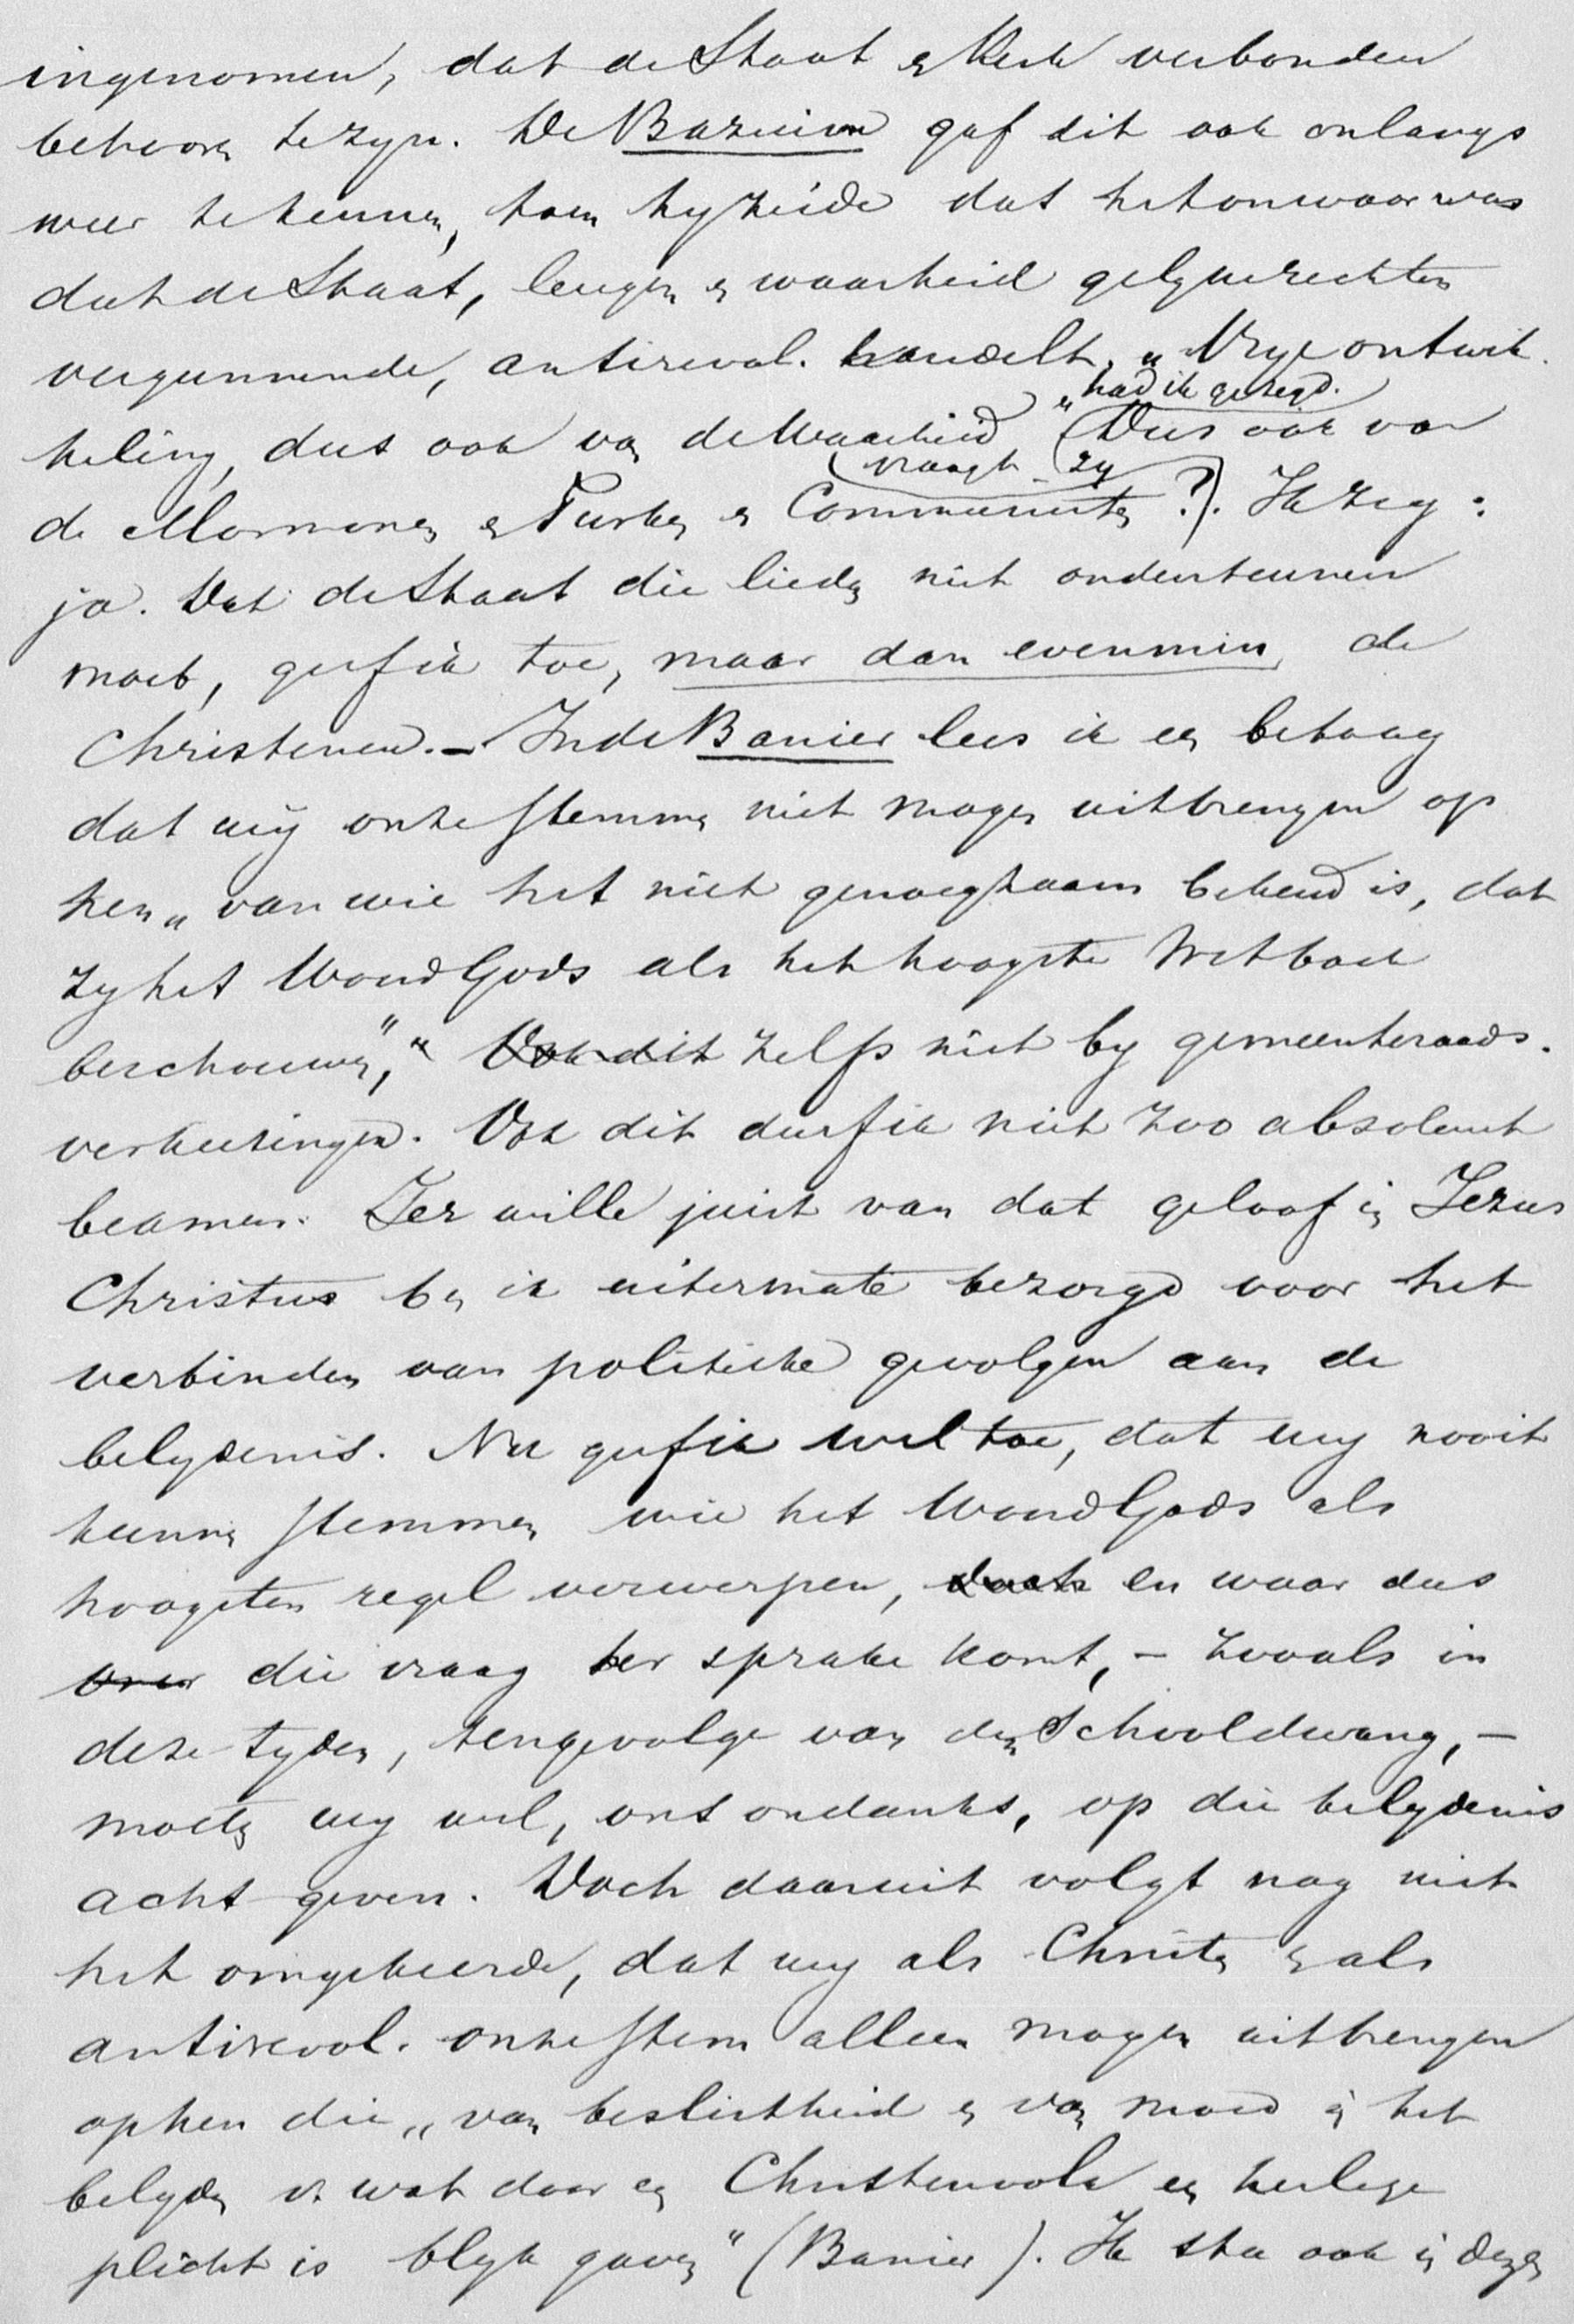 ingenomen, dat de Staat en Kerk verbonden
behooren te zyn. De Bazuin gaf dit ook onlangs
weer te kennen, toen hy zeide dat het onwaar was
dat de Staat, leugen en waarheid gelyke rechten
vergunnende, antirevol. handelt. „Vrye ontwik-
„had ik gezegd.
keling, dus ook van de Waarheid" (Dus ook van
(vraagt zy
de Mormonen en Turken en Communisten?). Ik zeg:
ja. Dat de Staat die lieden niet ondersteunen
moet, geef ik toe, maar dan evenmin de
Christenen. – In de Banier lees ik een betoog
dat wij onze stemmen niet mogen uitbrengen op
hen „van wie het niet genoegzaam bekend is, dat
zy het Woord Gods als het hoogste Wetboek
beschouwen", " Ook dit zelfs niet by gemeenteraads-
verkiezingen. Ook dit durf ik niet zoo absoluut
beamen. Ter wille juist van dat geloof in Jezus
Christus ben ik uitermate bezorgd voor het
verbinden van politieke gevolgen aan de
belydenis. Nu geef ik wel toe, dat wy nooit
kunnen stemmen wie het Woord Gods als
hoogsten regel verwerpen, doch en waar dus
over die vraag ter sprake komt, – zooals in
deze tyden, tengevolge van den Schooldwang, –
moeten wy wel, ons ondanks, op die belydenis
acht geven. Doch daaruit volgt nog niet
het omgekeerde, dat wy als Christen en als
antirevol. onze stem alleen mogen uitbrengen
op hen die „van beslistheid en van moed in het
belyden v. wat door een Christenvolk een heilige
plicht is blyk gaven" (Banier). Ik sta ook in dezen